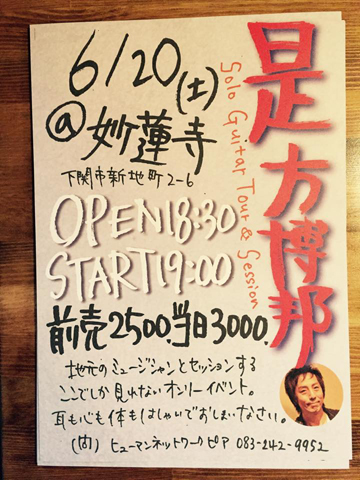 是方博邦
Solo Guitar Tour & Session
6/20(土)
@妙蓮寺
下関市新地町2-6
OPEN18:30
START19:00
前売2500.当日3000.
地元のミュージシャンとセッションする
ここでしか見れないオンリーイベント。
耳も心も体もはしゃいでおしまいなさい。
(問)ヒューマンネットワークピア 083-242-9952